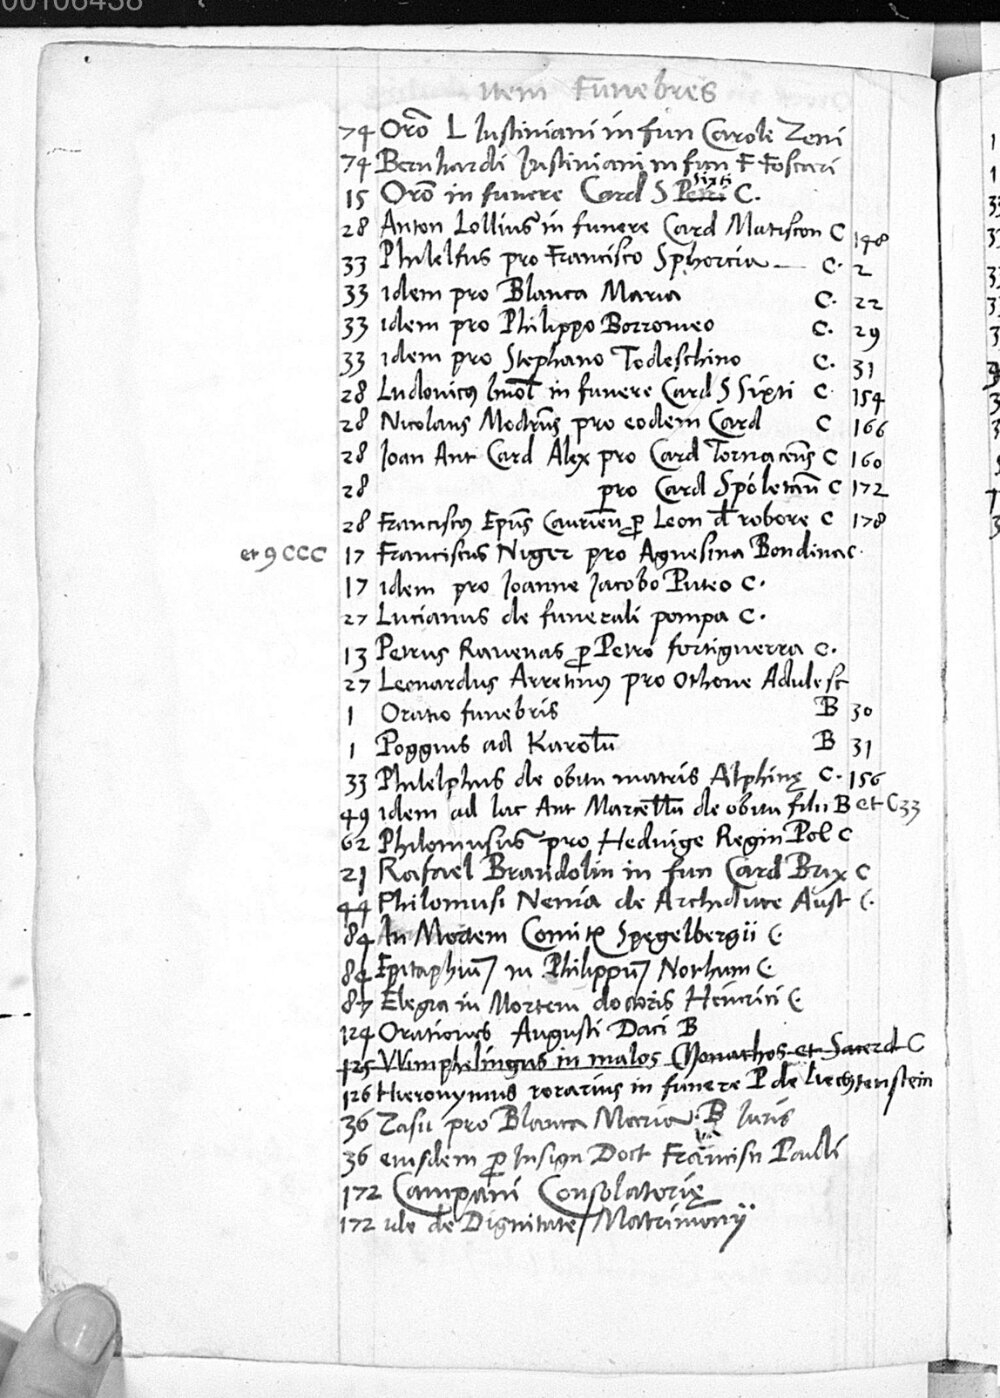 00106438
Item Funebres
74 Orõ L Iustiniani in fun Carole Zeni
74 Bernhardi Iustiniani in fun F Foscari
15 Orõ in funere Card S Petri Sixti C.
28 Anton Lollius in funere Card Matiscon C 148
33 Philelfus pro Francisco Sphorcia C. 2
33 idem pro Blanca Maria C. 22
33 idem pro Philippo Borromeo C. 29
33 idem pro Stephano Todeschino C. 31
28 Ludovicus Imol in funere Card S Sixti C 154
28 Nicolaus Modrus̃ pro eodem Card C 166
28 Ioan Ant Card Alex pro Card Tornaceñs C 160
28 pro Card Spoletañ C 172
28 Franciscus Epũs Caurieñ p Leon d robore C 178
et 9 CCC 17 Franciscus Niger pro Agnesina Bondina C.
17 idem pro Ioanne Iacobo Puteo C.
27 Lucianus de funerali pompa C.
13 Petrus Ravenas p Petro fortiguerra C.
27 Leonardus Arretinus pro Othone Adulesc
1 Oratio funebris B 30
1 Poggius ad Karolũ B 31
33 Philelphus de obitu matris Alphinę C. 156
49 idem ad Iac Ant Marcellũ de obitu filii B et C 33
62 Philomusus pro Hedvige Regin Pol C
21 Rafael Brandolin in fun Card Brix C
44 Philomusi Nenia de Archiduce Aust C.
84 In Mortem Comitis Spęgelbergii C.
84 Epitaphiũ in Philippũ Nothum C.
87 Elegia in Mortem doctoris Heinrici C.
124 Orationes Augusti Daci B
125 Wimphelingus in malos Monachos et Sacerd C
126 Hieronymus rorarius in funere P de Liechtenstein
36 Zasii pro Blanca Maria B Iuris
36 eiusdem p Insign Doct Francisci Pauli
172 Campani Consolatorię
172 de Dignitate Matrimonij